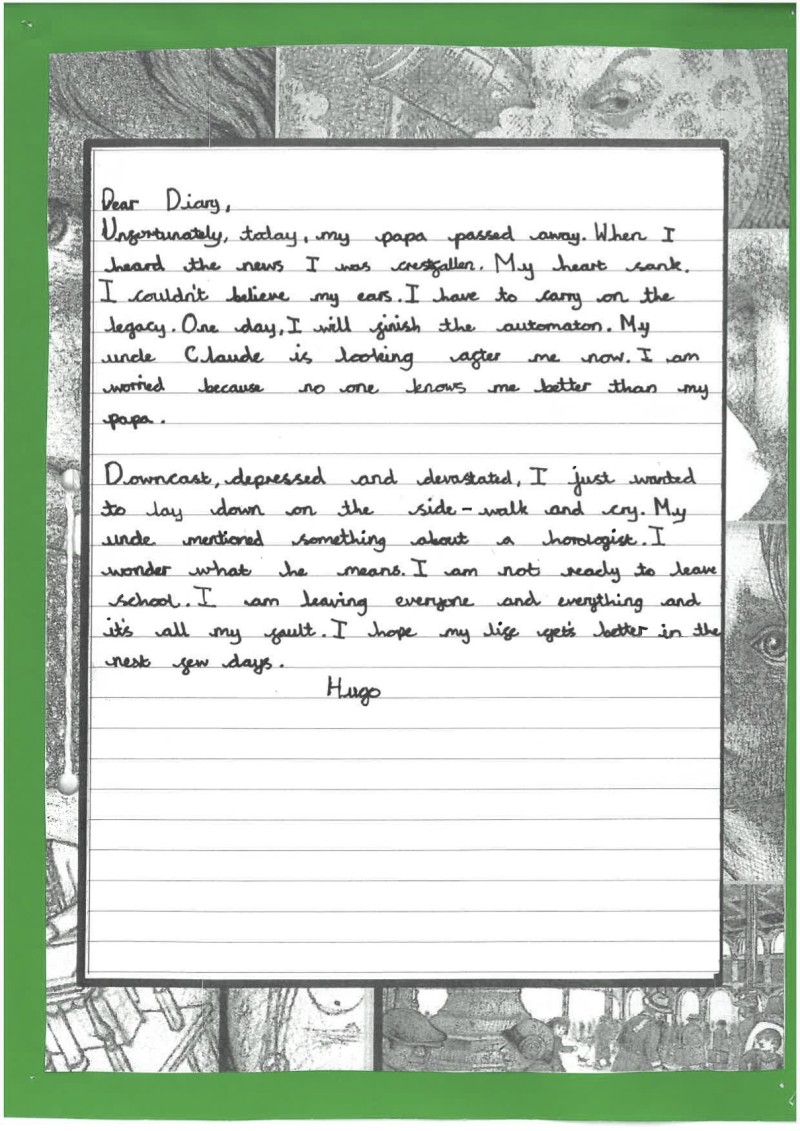 Dear Diary,
Unfortunately, today, my papa passed away. When I
heard the news I was crestfallen. My heart sank.
I couldn't believe my ears. I have to carry on the
legacy. One day, I will finish the automaton. My
uncle Claude is looking after me now. I am
worried because no one knows me better than my
papa.
Downcast, depressed and devastated, I just wanted
to lay down on the side-walk and cry. My
uncle mentioned something about a horologist. I
wonder what he means. I am not ready to leave
school. I am leaving everyone and everything and
it's all my fault. I hope my life gets better in the
next few days.
Hugo